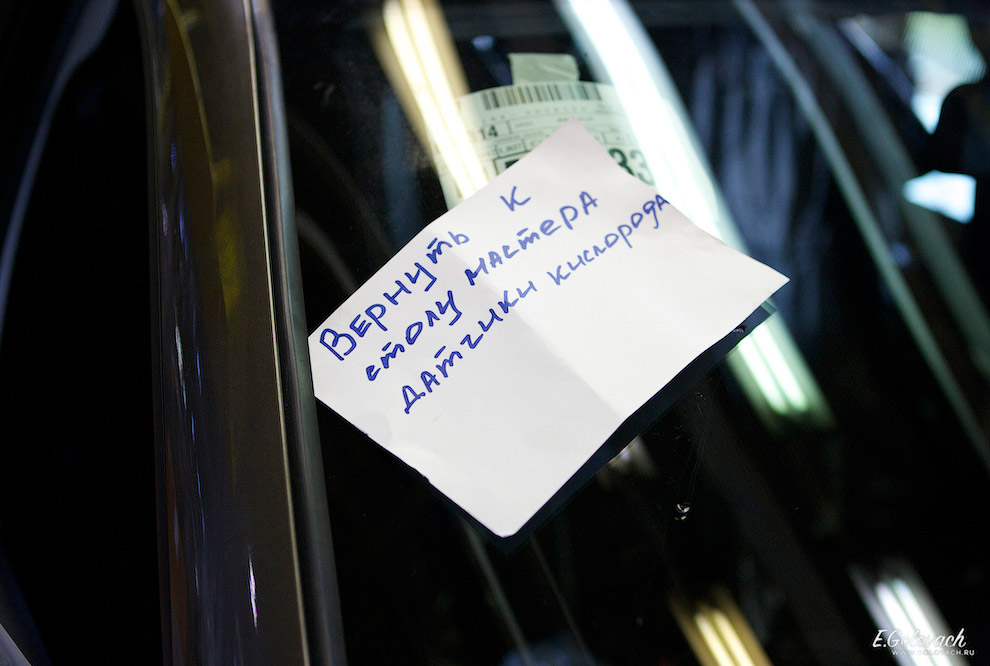 14
33
Вернуть к
столу мастера
датчики кислорода
E.Golovach
WWW.GOLOVACH.RU